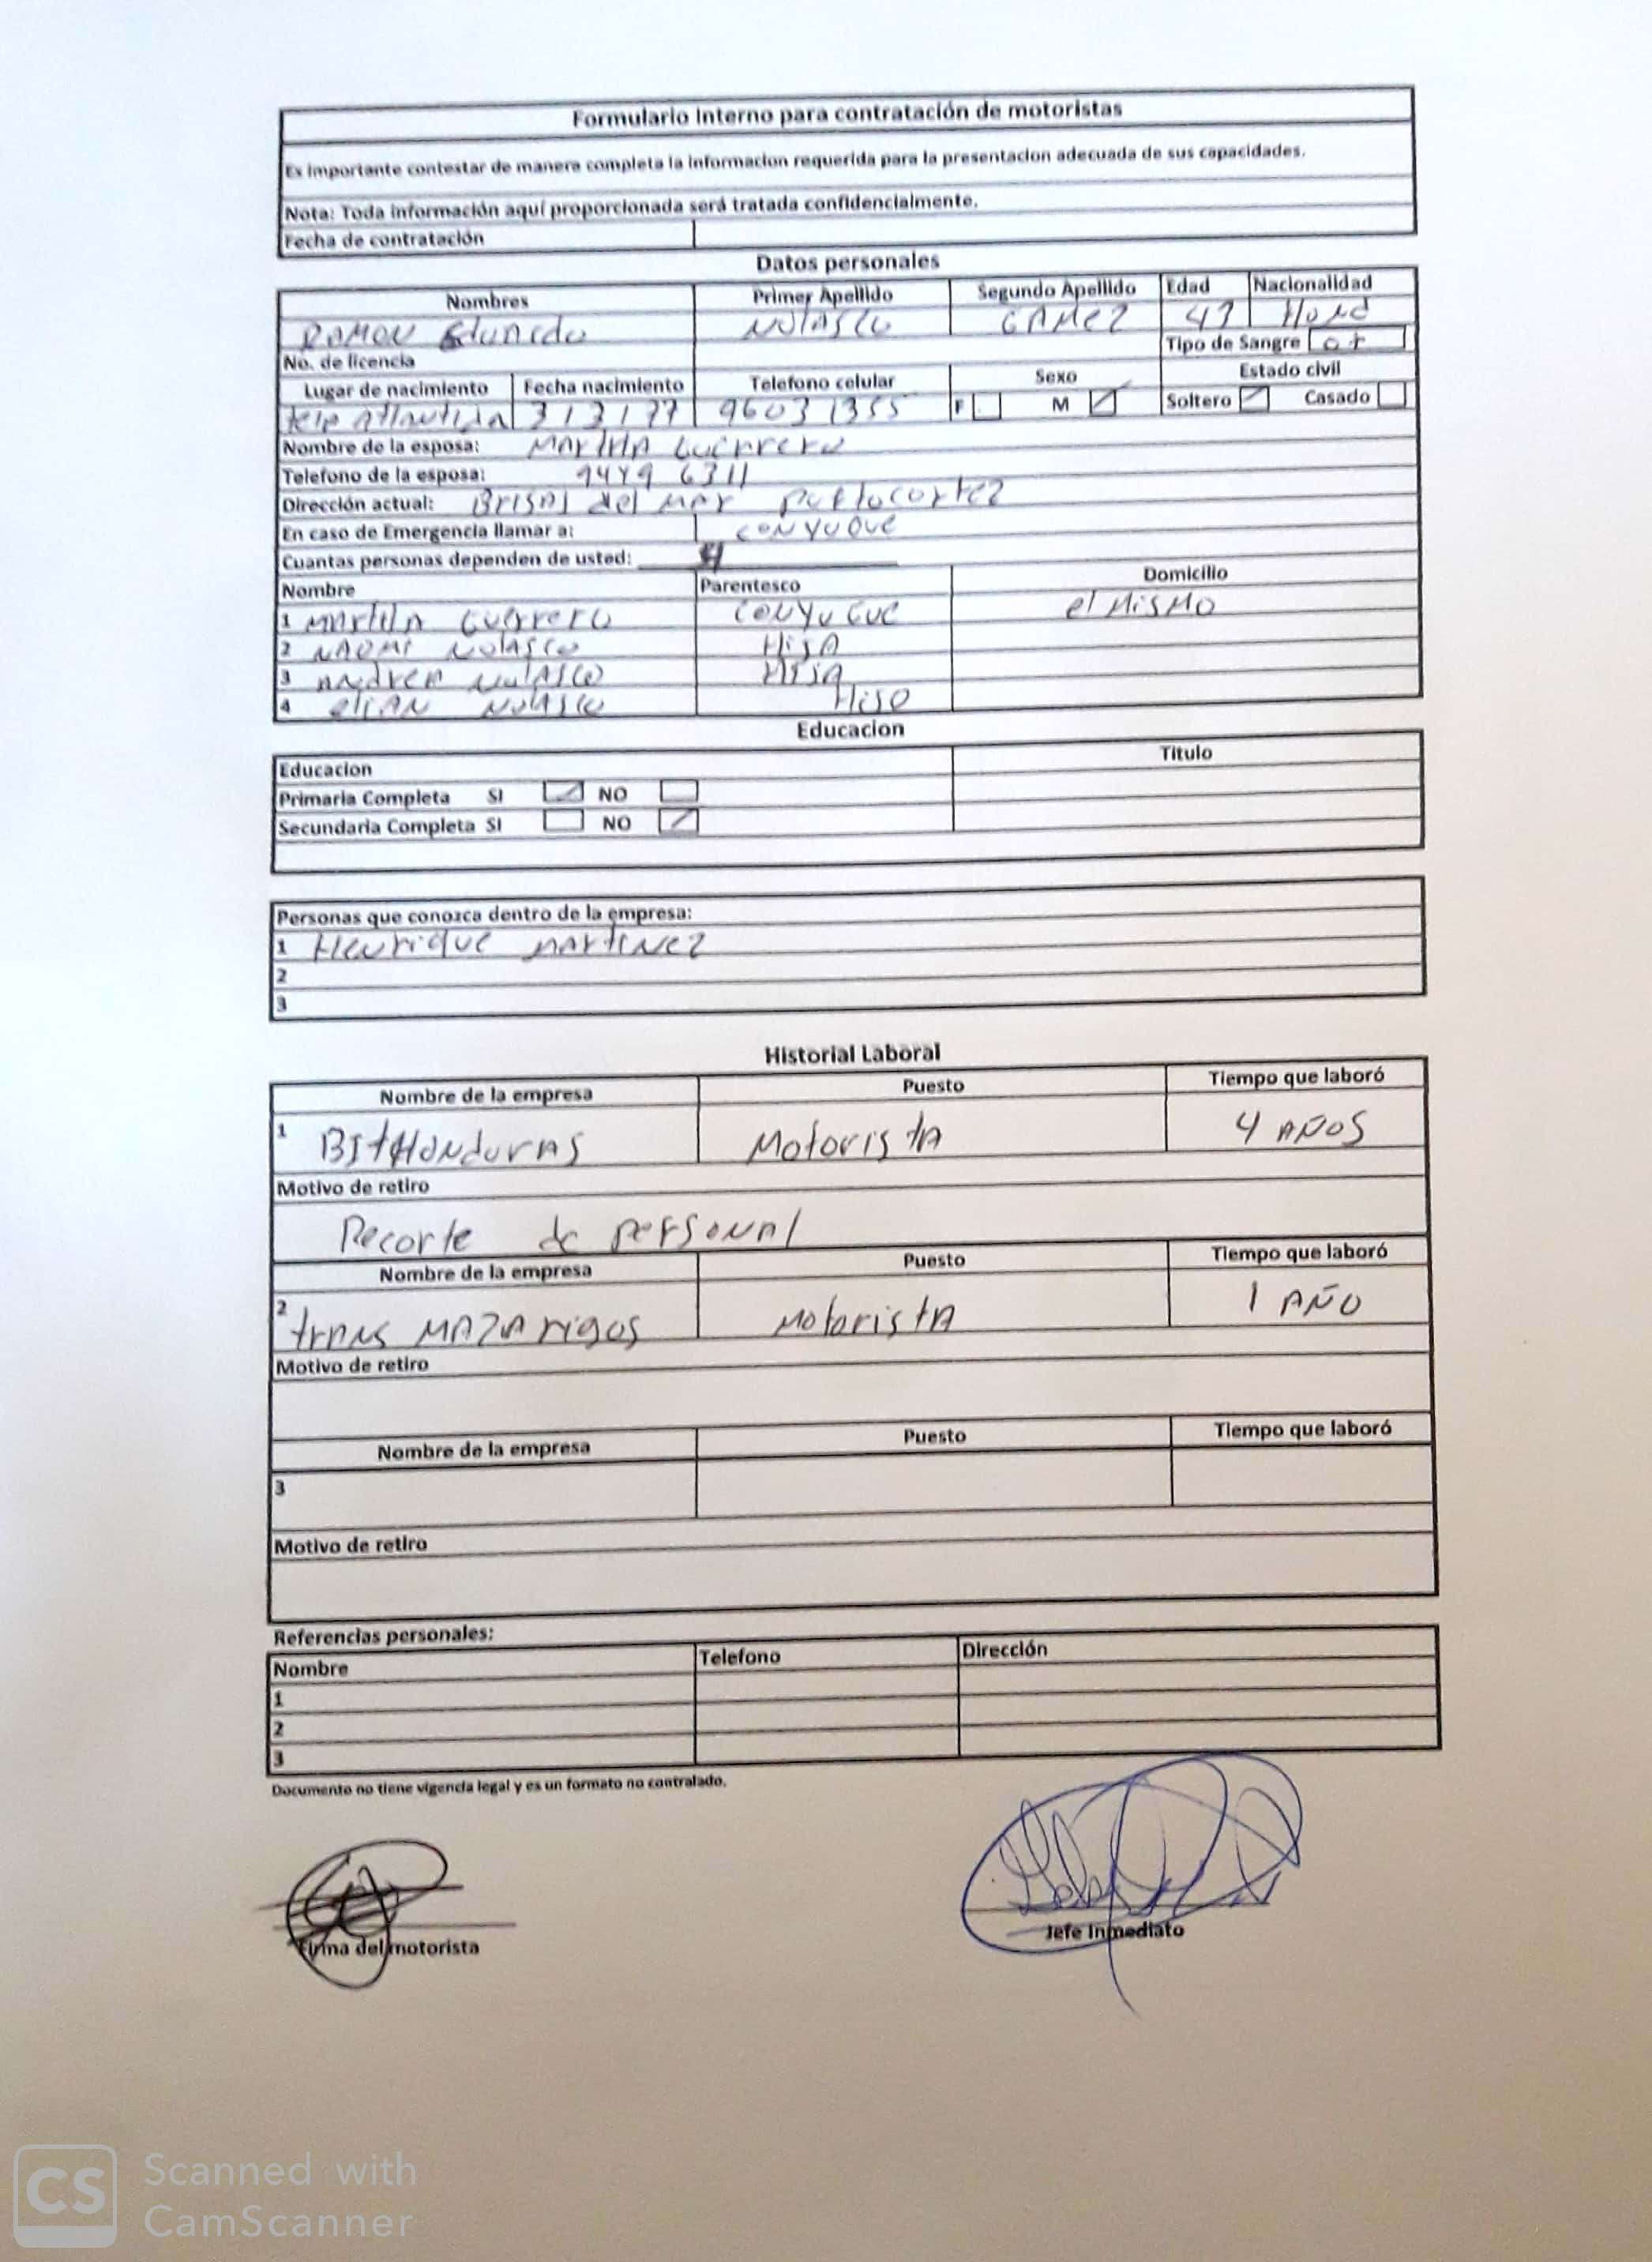 Formulario Interno para contratación de motoristas
Es importante contestar de manera completa la informacion requerida para la presentacion adecuada de sus capacidades.
Nota: Toda información aquí proporcionada será tratada confidencialmente.
Fecha de contratación
Datos personales
Nombres Primer Apellido Segundo Apellido Edad Nacionalidad
Ramon Eduardo NOLASCO GAMEZ 47 Hond
No. de licencia Tipo de Sangre o+
Lugar de nacimiento Fecha nacimiento Telefono celular Sexo Estado civil
tela Atlantida 3/3/77 9603 1355 F M Soltero Casado
Nombre de la esposa: Guerrero
Telefono de la esposa: 9449 6311
Dirección actual: Brisas del mar puerto cortez
En caso de Emergencia llamar a: CONYUGUE
Cuantas personas dependen de usted: 4
Nombre Parentesco Domicilio
1 Guerrero CONYUGUE el MISMO
2 NAOMI NOLASCO HIJA
3 NOLASCO HIJA
4 eliAN NOLASCO HIJO
Educacion
Educacion Titulo
Primaria Completa SI NO
Secundaria Completa SI NO
Personas que conozca dentro de la empresa:
1 Henrique martinez
2
3
Historial Laboral
Nombre de la empresa Puesto Tiempo que laboró
1 Motorista 4 AÑOS
Motivo de retiro
Recorte de personal
Nombre de la empresa Puesto Tiempo que laboró
2 trans MAZARIGOS Motorista 1 AÑO
Motivo de retiro
Nombre de la empresa Puesto Tiempo que laboró
3
Motivo de retiro
Referencias personales:
Nombre Telefono Dirección
1
2
3
Documento no tiene vigencia legal y es un formato no contralado.
Firma del motorista Jefe Inmediato
CS Scanned with
CamScanner